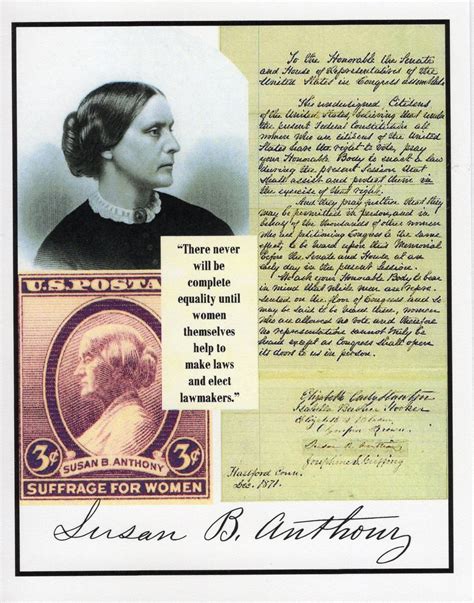 To the Honorable the Senate
and House of Representatives of the
United States in Congress assembled.
The undersigned Citizens
of the United States, believing that under
the present Federal Constitution all
women who are citizens of the United
States have the right to vote, pray
your Honorable Body to enact a law
during the present Session that
shall assist and protect them in
the exercise of that right.
And they pray further that they
may be permitted in person, and in
behalf of the thousands of other women
who are petitioning Congress to the same
effect, to be heard upon this Memorial
before the Senate and House at an
early day in the present session.
We ask your Honorable Body to bear
in mind that while men are repre-
sented on the floor of Congress and so
may be said to be heard there, women
who are allowed no vote and therefore
no representation cannot truly be
heard except as Congress shall open
its doors to us in person.
Elizabeth Cady Stanton
Isabella Beecher Hooker
Elizabeth
Olympia Brown
Susan B. Anthony
Josephine S. Griffing
Hartford Conn.
Dec. 1871.
“There never
will be
complete
equality until
women
themselves
help to
make laws
and elect
lawmakers.”
U.S. POSTA
3¢ 3¢
SUSAN B. ANTHONY
SUFFRAGE FOR WOMEN
Susan B. Anthony